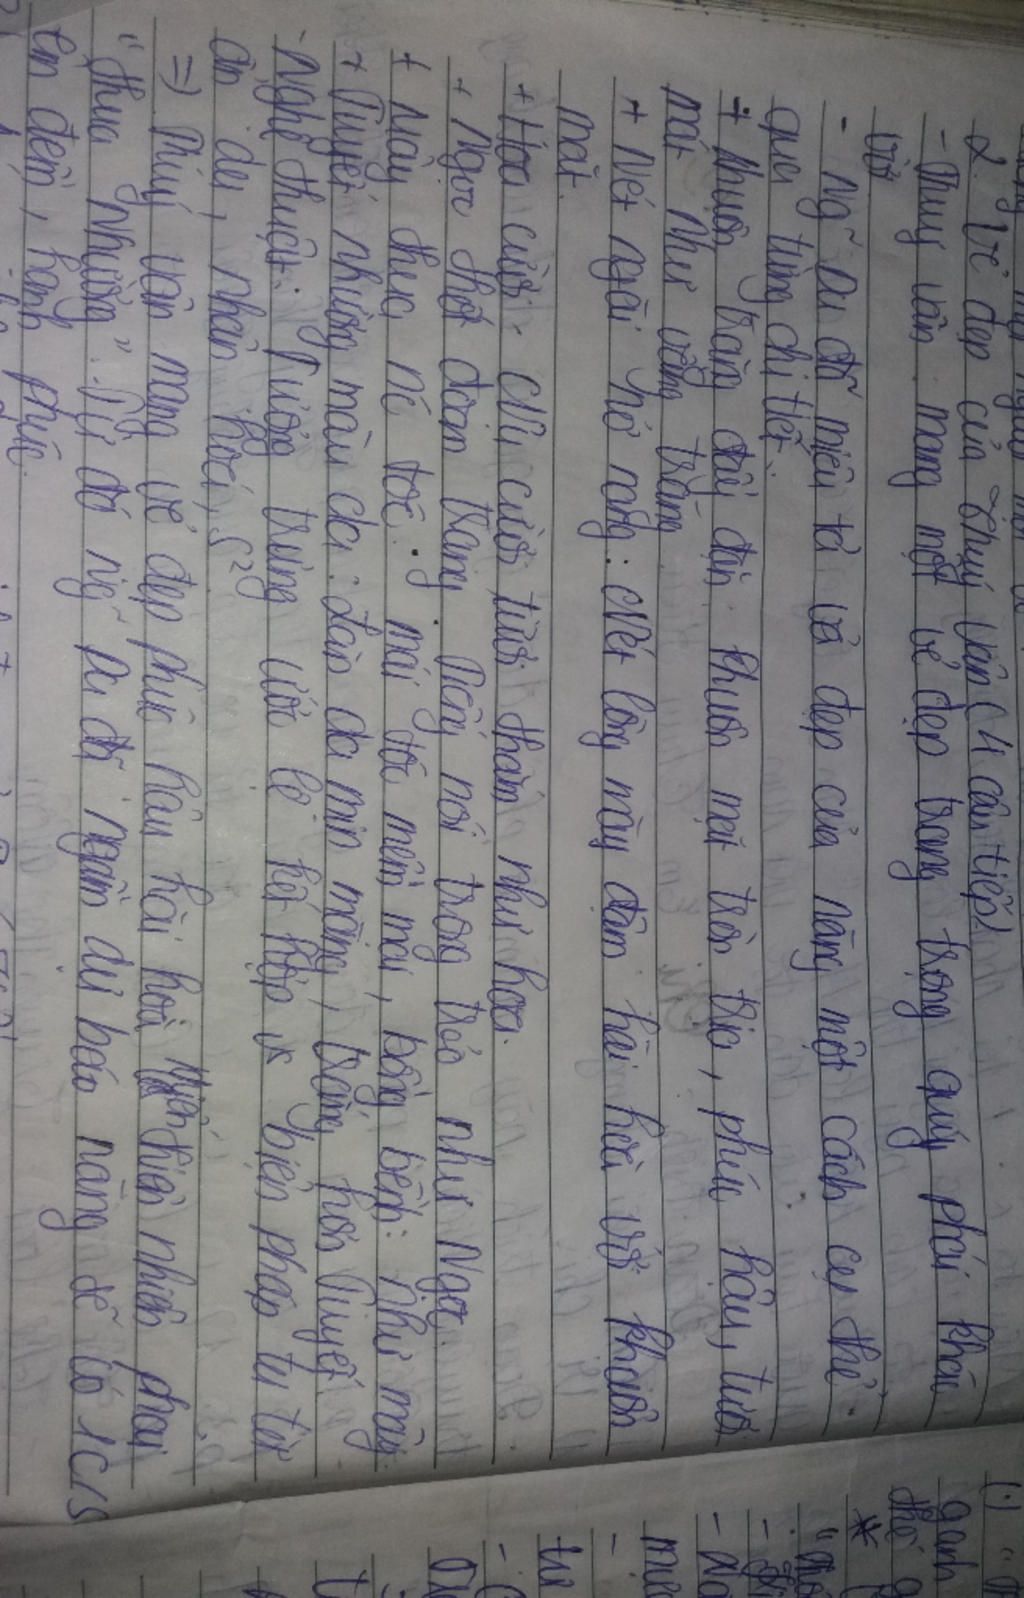 2. Vẻ đẹp của Thuý Vân (4 câu tiếp)
- Thuý Vân mang một vẻ đẹp trang trọng quý phái khác
vời
- Ng~ Du đã miêu tả vẻ đẹp của nàng một cách cụ thể
qua từng chi tiết.
+ Khuôn trăng đầy đặn khuôn mặt tròn trịa, phúc hậu, tươi
mát như vầng trăng
+ Nét ngài nở nang: Nét lông mày đậm hài hoà với khuôn
mặt.
+ Hoa cười: Nụ cười tươi thắm như hoa.
+ Ngọc thốt đoan trang tiếng nói trong trẻo như Ngọc.
+ Mây thua nc tóc: mái tóc mềm mại, bồng bềnh: Như mây
+ Tuyết nhường màu da: Làn da mịn màng, trắng hơn Tuyết
- Nghệ thuật: Tượng trưng ước lệ kết hợp vs biện pháp tu từ
ẩn dụ, nhân hoá, s²
=> Thuý Vân mang vẻ đẹp phúc hậu hài hoà khiến thiên nhiên phải
"thua" "Nhường". Từ đó ng~ Du đã ngầm dự báo nàng sẽ có 1 c/s
êm đềm, hạnh phúc.